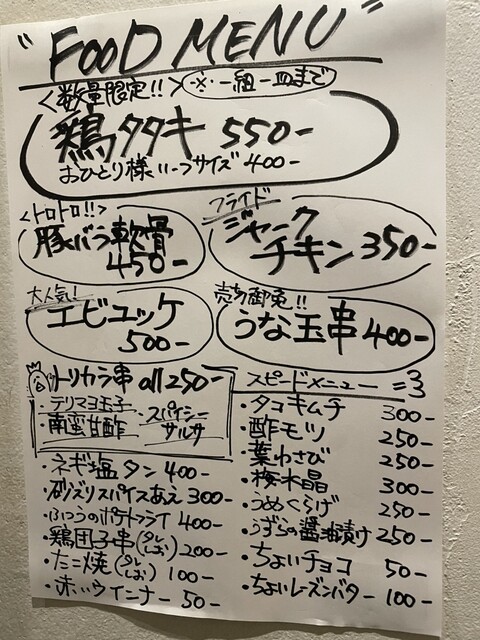 "FOOD MENU"
<数量限定!!> ※・一組一皿まで
鶏タタキ 550-
おひとり様ハーフサイズ 400-
<トロトロ!!>
豚バラ軟骨
450-
フライド
ジャーク
チキン 350-
大人気!
エビユッケ
500-
売切御免!!
うな玉串 400-
トリカラ串 all 250-
・テリマヨ玉子
・南蛮甘酢
スパイシー
サルサ
・ネギ塩タン 400-
・砂ズリスパイスあえ 300-
・ふつうのポテトフライ 400-
・鶏団子串(タレ しお) 200-
・たこ焼(タレ しお) 100-
・赤いウインナー 50-
スピードメニュー =3
・タコキムチ 300-
・酢モツ 250-
・葉わさび 250-
・梅水晶 300-
・うめくらげ 250-
・うずらの醤油漬け 250-
・ちょいチョコ 50-
・ちょいレーズンバター 100-